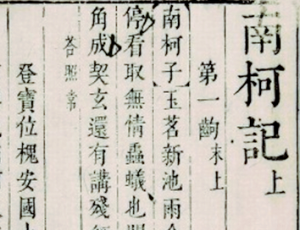 南柯記上
第一齣末上
【南柯子】玉茗新池雨
停看取無情蟲蟻也
角成契玄還有講殘
荅照常
登寶位槐安國